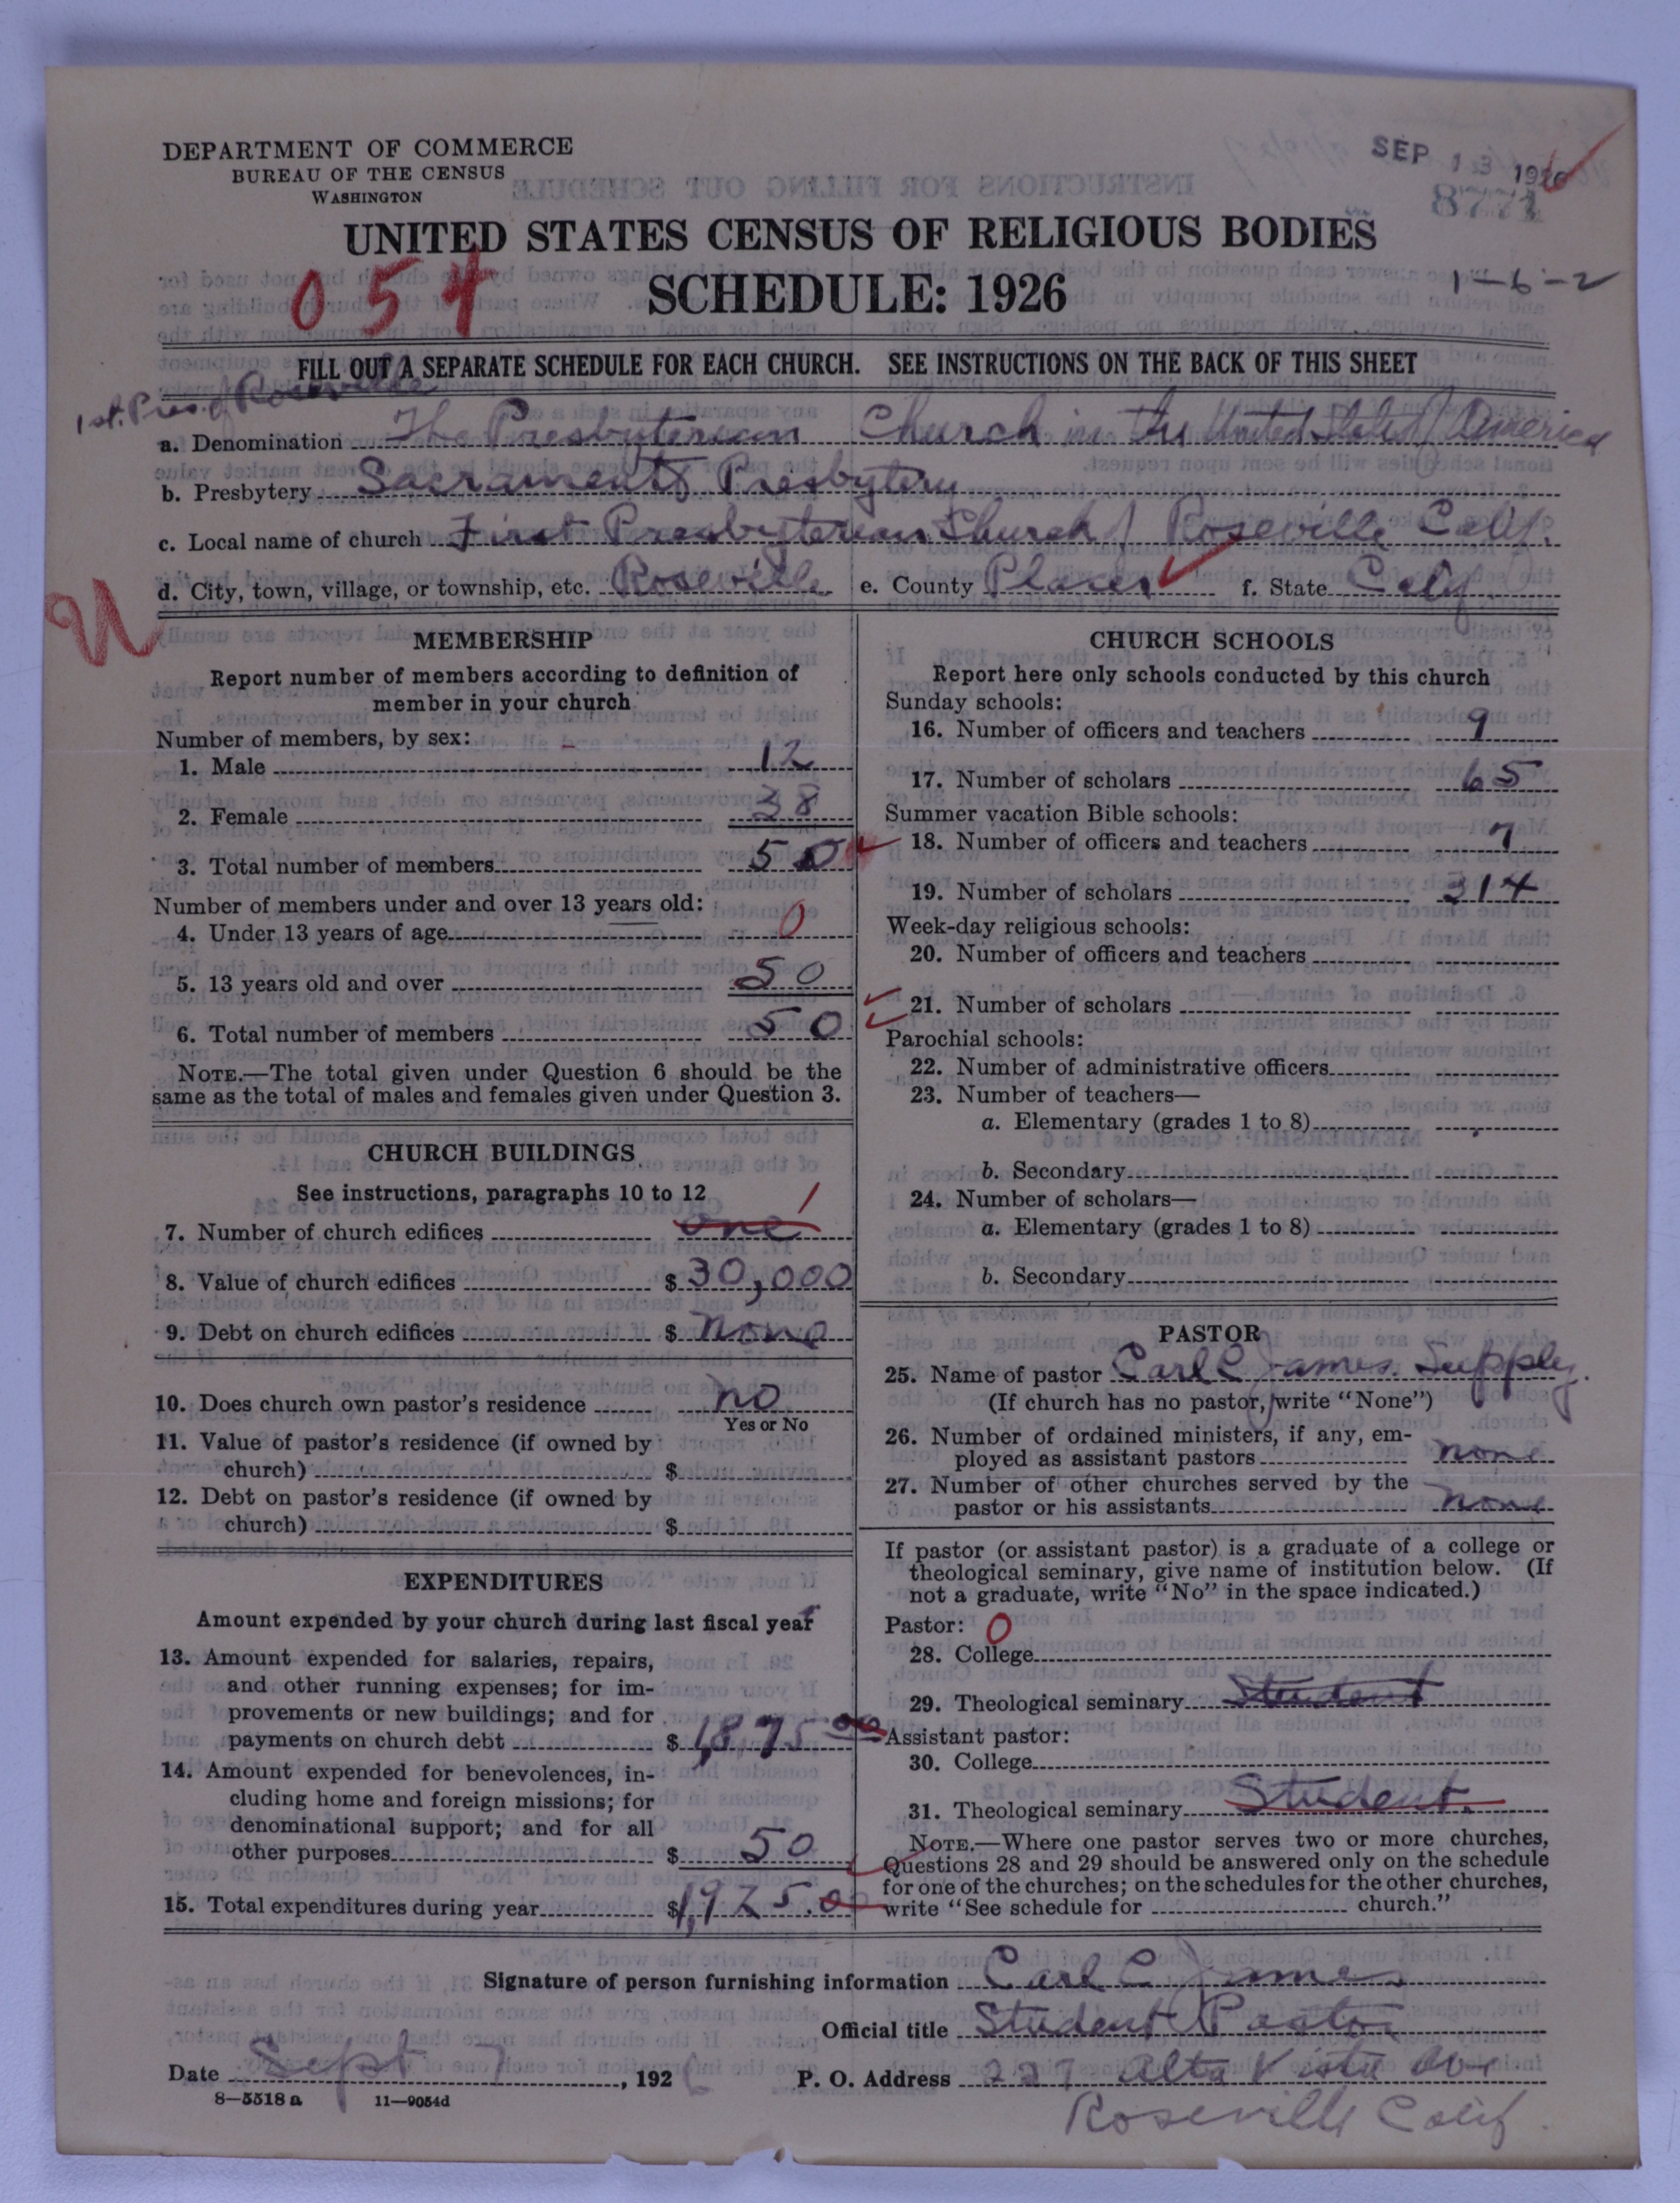 DEPARTMENT OF COMMERCE
BUREAU OF THE CENSUS
WASHINGTON
SEP 13 1926
8771
UNITED STATES CENSUS OF RELIGIOUS BODIES
SCHEDULE: 1926
054
1-6-2
FILL OUT A SEPARATE SCHEDULE FOR EACH CHURCH. SEE INSTRUCTIONS ON THE BACK OF THIS SHEET
1st. Pres. of Roseville
a. Denomination The Presbyterian Church in the United States of America
b. Presbytery Sacramento Presbytery
c. Local name of church First Presbyterian Church of Roseville Calif.
d. City, town, village, or township, etc. Roseville e. County Placer f. State Calif
U
MEMBERSHIP
Report number of members according to definition of
member in your church
Number of members, by sex:
1. Male 12
2. Female 38
3. Total number of members 50
Number of members under and over 13 years old:
4. Under 13 years of age 0
5. 13 years old and over 50
6. Total number of members 50
NOTE.—The total given under Question 6 should be the
same as the total of males and females given under Question 3.
CHURCH BUILDINGS
See instructions, paragraphs 10 to 12
7. Number of church edifices one 1
8. Value of church edifices $ 30,000
9. Debt on church edifices $ None
10. Does church own pastor's residence no
Yes or No
11. Value of pastor's residence (if owned by
church) $
12. Debt on pastor's residence (if owned by
church) $
EXPENDITURES
Amount expended by your church during last fiscal year
13. Amount expended for salaries, repairs,
and other running expenses; for im-
provements or new buildings; and for
payments on church debt $ 1,875 00
14. Amount expended for benevolences, in-
cluding home and foreign missions; for
denominational support; and for all
other purposes $ 50
15. Total expenditures during year $ 1,925.00
CHURCH SCHOOLS
Report here only schools conducted by this church
Sunday schools:
16. Number of officers and teachers 9
17. Number of scholars 65
Summer vacation Bible schools:
18. Number of officers and teachers 7
19. Number of scholars 314
Week-day religious schools:
20. Number of officers and teachers
21. Number of scholars
Parochial schools:
22. Number of administrative officers
23. Number of teachers—
a. Elementary (grades 1 to 8)
b. Secondary
24. Number of scholars—
a. Elementary (grades 1 to 8)
b. Secondary
PASTOR
25. Name of pastor Carl C James. Supply.
(If church has no pastor, write "None")
26. Number of ordained ministers, if any, em-
ployed as assistant pastors none
27. Number of other churches served by the
pastor or his assistants none
If pastor (or assistant pastor) is a graduate of a college or
theological seminary, give name of institution below. (If
not a graduate, write "No" in the space indicated.)
Pastor: 0
28. College
29. Theological seminary Student
Assistant pastor:
30. College
31. Theological seminary Student.
NOTE.—Where one pastor serves two or more churches,
Questions 28 and 29 should be answered only on the schedule
for one of the churches; on the schedules for the other churches,
write "See schedule for church."
Signature of person furnishing information Carl C James
Official title Student Pastor
Date Sept 7, 1926 P. O. Address 227 Alta Vista Ave
8-5518 a 11-9054d
Roseville Calif.